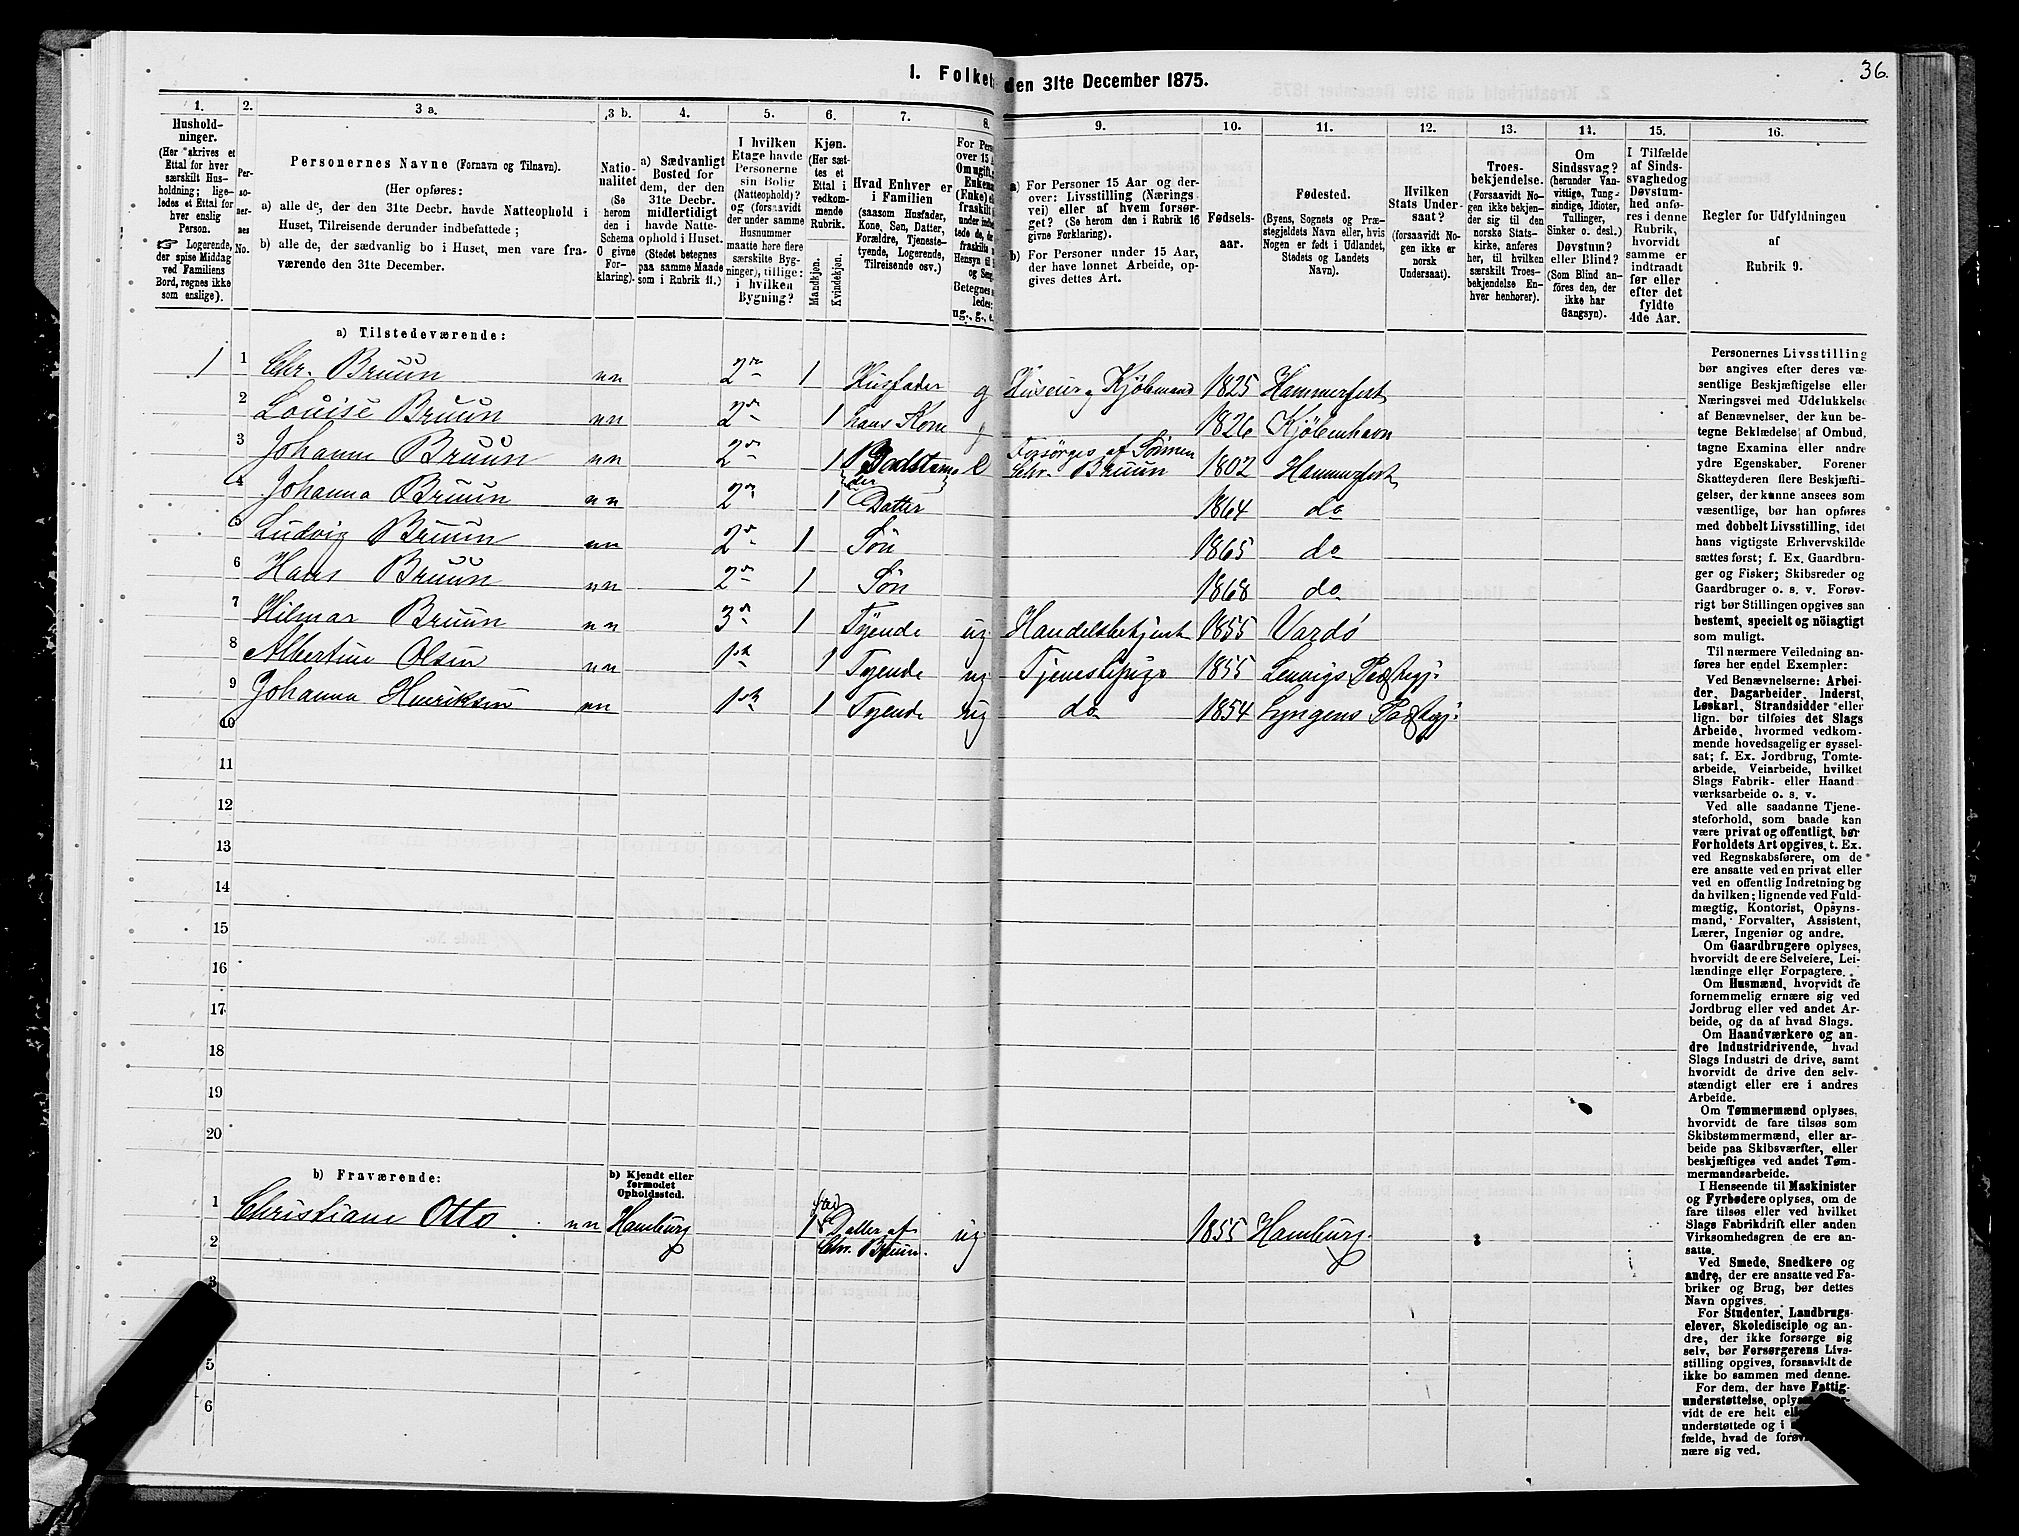 36.
1. Folket
den 31te December 1875.
1.
2.
3 a.
3 b.
4.
5.
6.
7.
8.
9.
10.
11.
12.
13.
14.
15.
16.
Hushold-
ninger.
(Her skrives et
Ettal for hver
særskilt Hus-
holdning; lige-
ledes et Ettal for
hver enslig
Person.
☞ Logerende,
der spise Middag
ved Familiens
Bord, regnes ikke
som enslige).
Per-
so-
ner-
nes-
No.
Personernes Navne (Fornavn og Tilnavn).
(Her opføres:
a) alle de, der den 31te Decbr. havde Natteophold i
Huset, Tilreisende derunder indbefattede;
b) alle de, der sædvanlig bo i Huset, men vare fra-
værende den 31te December.
Natio-
nalitet
(Se
herom
den i
Schema
O givne
For-
klaring).
a) Sædvanligt
Bosted for
dem, der den
31te Decbr.
midlertidigt
havde Natte-
ophold i Huset.
(Stedet betegnes
paa samme Maade
som i Rubrik 11.)
I hvilken
Etage havde
Personerne
sin Bolig
(Natteophold)?
og (forsaavidt
der under samme
Husnummer
maatte høre flere
særskilte Byg-
ninger), tillige:
i hvilken
Bygning?
Kjøn.
(Her sæt-
tes et
Ettal i
vedkom-
mende
Rubrik.
Mandkjøn.
Kvindekjøn.
Hvad Enhver er
i Familien
(saasom Husfader,
Kone, Søn, Datter,
Forældre, Tjeneste-
tyende, Logerende,
Tilreisende osv.)
For Pers
over 15 A
Om ugift, g
Enkema
(Enke) el
fraskilt
Betegnes s
ledes:
ug., g., e.
a) For Personer 15 Aar og der-
over: Livsstilling (Nærings
vei) eller af hvem forsør-
get? (Se herom den i Rubrik 16
givne Forklaring).
b) For Personer under 15 Aar,
der have lønnet Arbeide, op-
gives dettes Art.
Fødsels-
aar.
Fødested.
(Byens, Sognets og Præ-
stegjeldets Navn eller, hvis
Nogen er født i Udlandet,
Stedets og Landets
Navn).
Hvilken
Stats Under-
saat?
(forsaavidt No-
gen ikke er
norsk
Undersaat).
Troes-
bekjendelse.
(Forsaavidt No-
gen ikke bekjen-
der sig til den
norske Stats-
kirke, anføres
her, til hvilken
særskilt Troes-
bekjendelse En-
hver henhører).
Om
Sindssvag?
(herunder Van-
vittige, Tung-
sindige, Idioter,
Tullinger,
Sinker o. desl.)
Døvstum?
eller Blind?
(Som Blind an-
føres den, der
ikke har
Gangsyn).
I Tilfælde
af Sinds-
svaghed og
Døvstum-
hed anfø-
res i denne
Rubrik,
hvorvidt
samme er
indtraadt
før eller
efter det
fyldte
4de Aar.
Regler for Udfyldningen
af
Rubrik 9.
a) Tilstedeværende:
1 1 Chr. Bruun nn 2en 1 Husfader g Huseier og Kjøbmand 1825 Hammerfest
2 Louise Bruun nn 2en 1 hans Kone g 1826 Kjøbenhavn
3 Johanne Bruun nn 2en 1 Bedstemoder e Forsørges af Sønnen Chr. Bruun 1802 Hammerfest
4 Johanna Bruun nn 2en 1 Datter 1864 do
5 Ludvig Bruun nn 2en 1 Søn 1865 do
6 Hans Bruun nn 2en 1 Søn 1868 do
7 Hilmar Bruun nn 3e 1 Tyende ug Handelsbetjent 1855 Vardø
8 Albertine Olsen nn 1ste 1 Tyende ug Tjenestepige 1855 Lenvigs Præstegj:
9 Johanna Henriksen nn 1ste 1 Tyende ug do 1854 Lyngens Præstegj:
10
11
12
13
14
15
16
17
18
19
20
b) Fraværende:
b) Kjendt eller
formodet
Opholdssted.
1 Christiane Otto nn Hamburg 1 Datter af Chr. Bruun. ug. 1855 Hamburg.
2
3
5
6
Personernes Livsstilling
bør angives efter deres væ-
sentlige Beskjæftigelse eller
Næringsvei med Udelukkelse
af Benævnelser, der kun be-
tegne Beklædelse af Ombud,
tagne Examina eller andre
ydre Egenskaber. Forener
Skatteyderen flere Beskjæfti-
gelser, der kunne ansees som
væsentlige, bør han opføres
med dobbelt Livsstilling, idet
hans vigtigste Erhvervskilde
sættes først; f. Ex. Gaardbru-
ger og Fisker; Skibsreder og
Gaardbruger o. s. v. Forøv-
rigt bør Stillingen opgives saa
bestemt, specielt og nöiagtigt
som muligt.
Til nærmere Veiledning an-
føres her endel Exempler:
Ved Benævnelserne: Arbei-
der, Dagarbeider, Inderst,
Løskarl, Strandsidder eller
lign. bør tilføies det Slags
Arbeide, hvormed vedkom-
mende hovedsagelig er syssel-
sat; f. Ex. Jordbrug, Tomte-
arbeide, Veiarbeide, hvilket
Slags Fabrik- eller Haand
værksarbeide o. s. v.
Ved alle saadanne Tjene-
steforhold, som baade kan
være privat og offentligt, bør
Forholdets Art opgives, t. Ex.
ved Regnskabsførere, om de
ere ansatte ved en privat eller
ved en offentlig Indretning og
da hvilken; lignende ved Fuld-
mægtig, Kontorist, Opsyns-
mand, Forvalter, Assistent,
Lærer, Ingeniør og andre.
Om Gaardbrugere oplyses,
hvorvidt de ere Selveiere, Lei-
lændinge eller Forpagtere.
Om Husmænd, hvorvidt de
fornemmelig ernære sig ved
Jordbrug eller ved andet Ar-
beide, og da af hvad Slags.
Om Haandværkere og an-
dre Industridrivende, hvad
Slags Industri de drive, samt
hvorvidt de drive den selv-
stændigt eller ere i andres
Arbeide.
Om Tømmermænd oplyses,
hvorvidt de fare tilsøs som
Skibstømmermænd, eller ar-
beide paa Skibsværfter, eller
beskjæftiges ved andet Tøm-
mermandsarbeide.
I Henseende til Maskinister
og Fyrbødere oplyses, om de
fare tilsøs eller ved hvilket
Slags Fabrikdrift eller anden
Virksomhedsgren de ere an-
satte.
Ved Smede, Snedkere og
andre, der ere ansatte ved Fa-
briker og Brug, bør dettes
Navn opgives.
For Studenter, Landbrugs-
elever, Skoledisciple og an-
dre, der ikke forsørge sig
selv, bør Forsørgerens Livs-
stilling opgives, forsaavidt de
ikke bo sammen med denne.
For dem, der have Fattig-
understøttelse, oplyses
vidt de ere helt
understøttede og i
fælde, hvad de
nære sig ved.